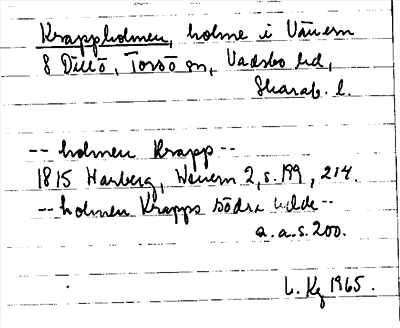 Krappholmen, holme i Vänern
S Dillö, Torsö sn, Vadsbo hd,
Skarab. l.
-- holmen Krapp --
1815 Harberg, Wenern 2, s. 199, 214.
-- holmen Krapps södra udde --
a.a.s. 200.
L. Kg 1965.